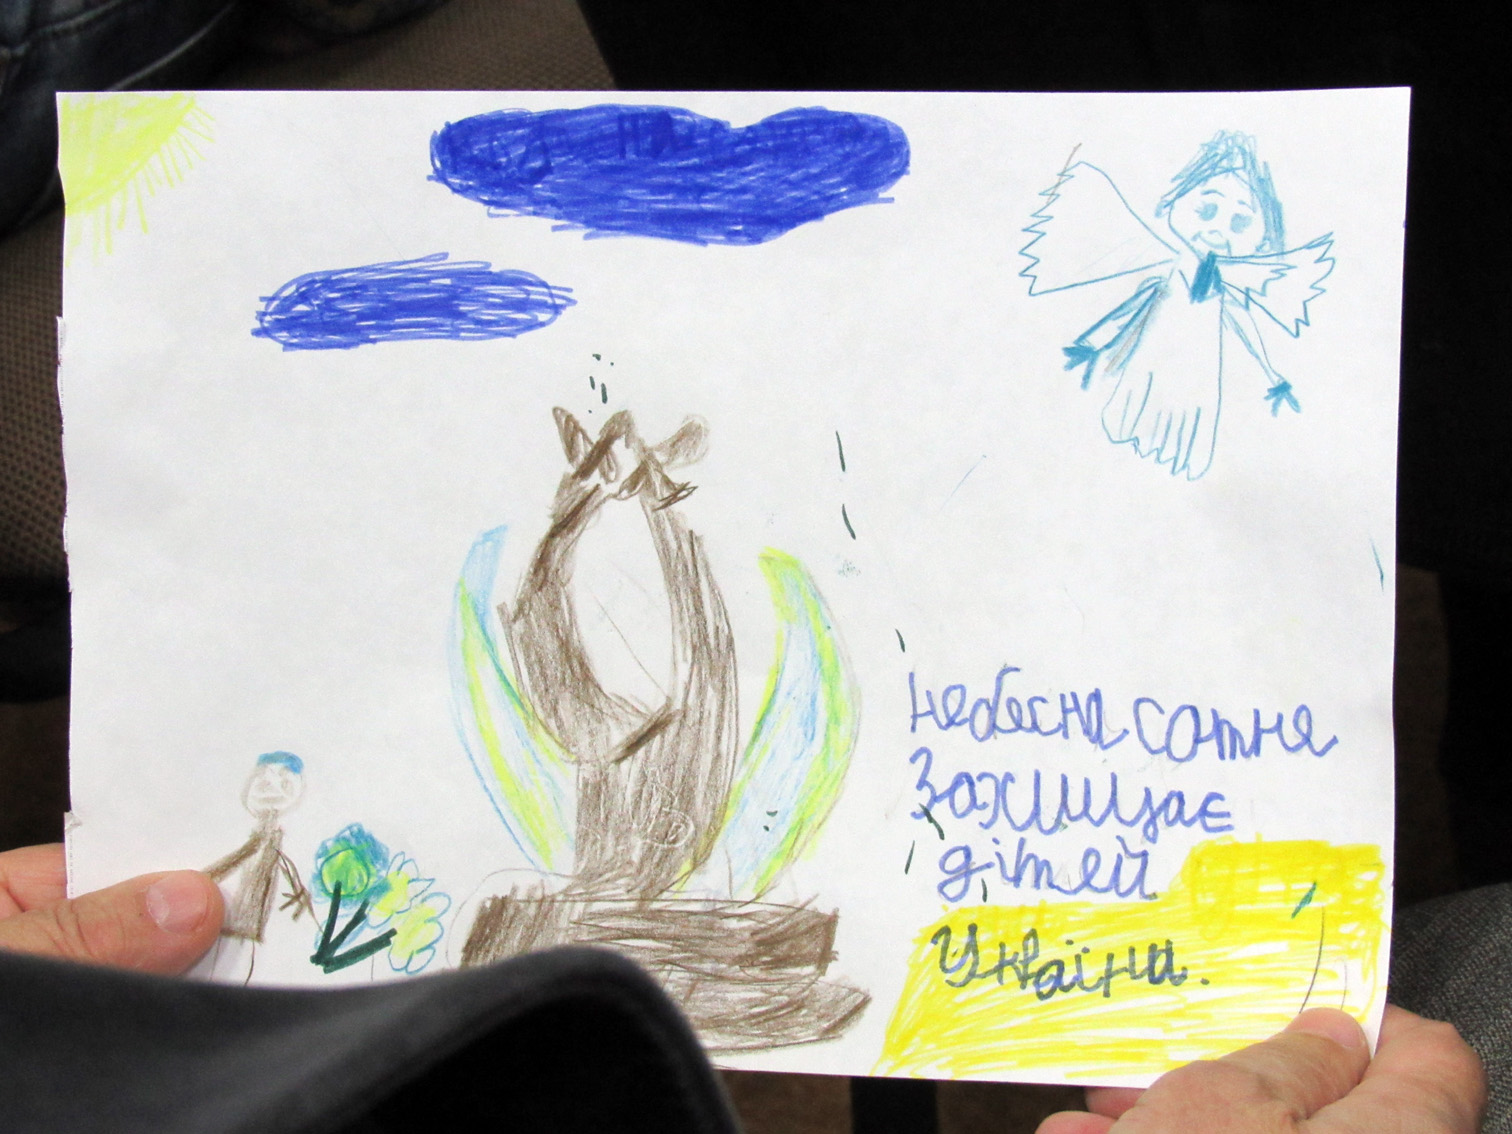 небесна сотне
Захищає
дітей
Україна.